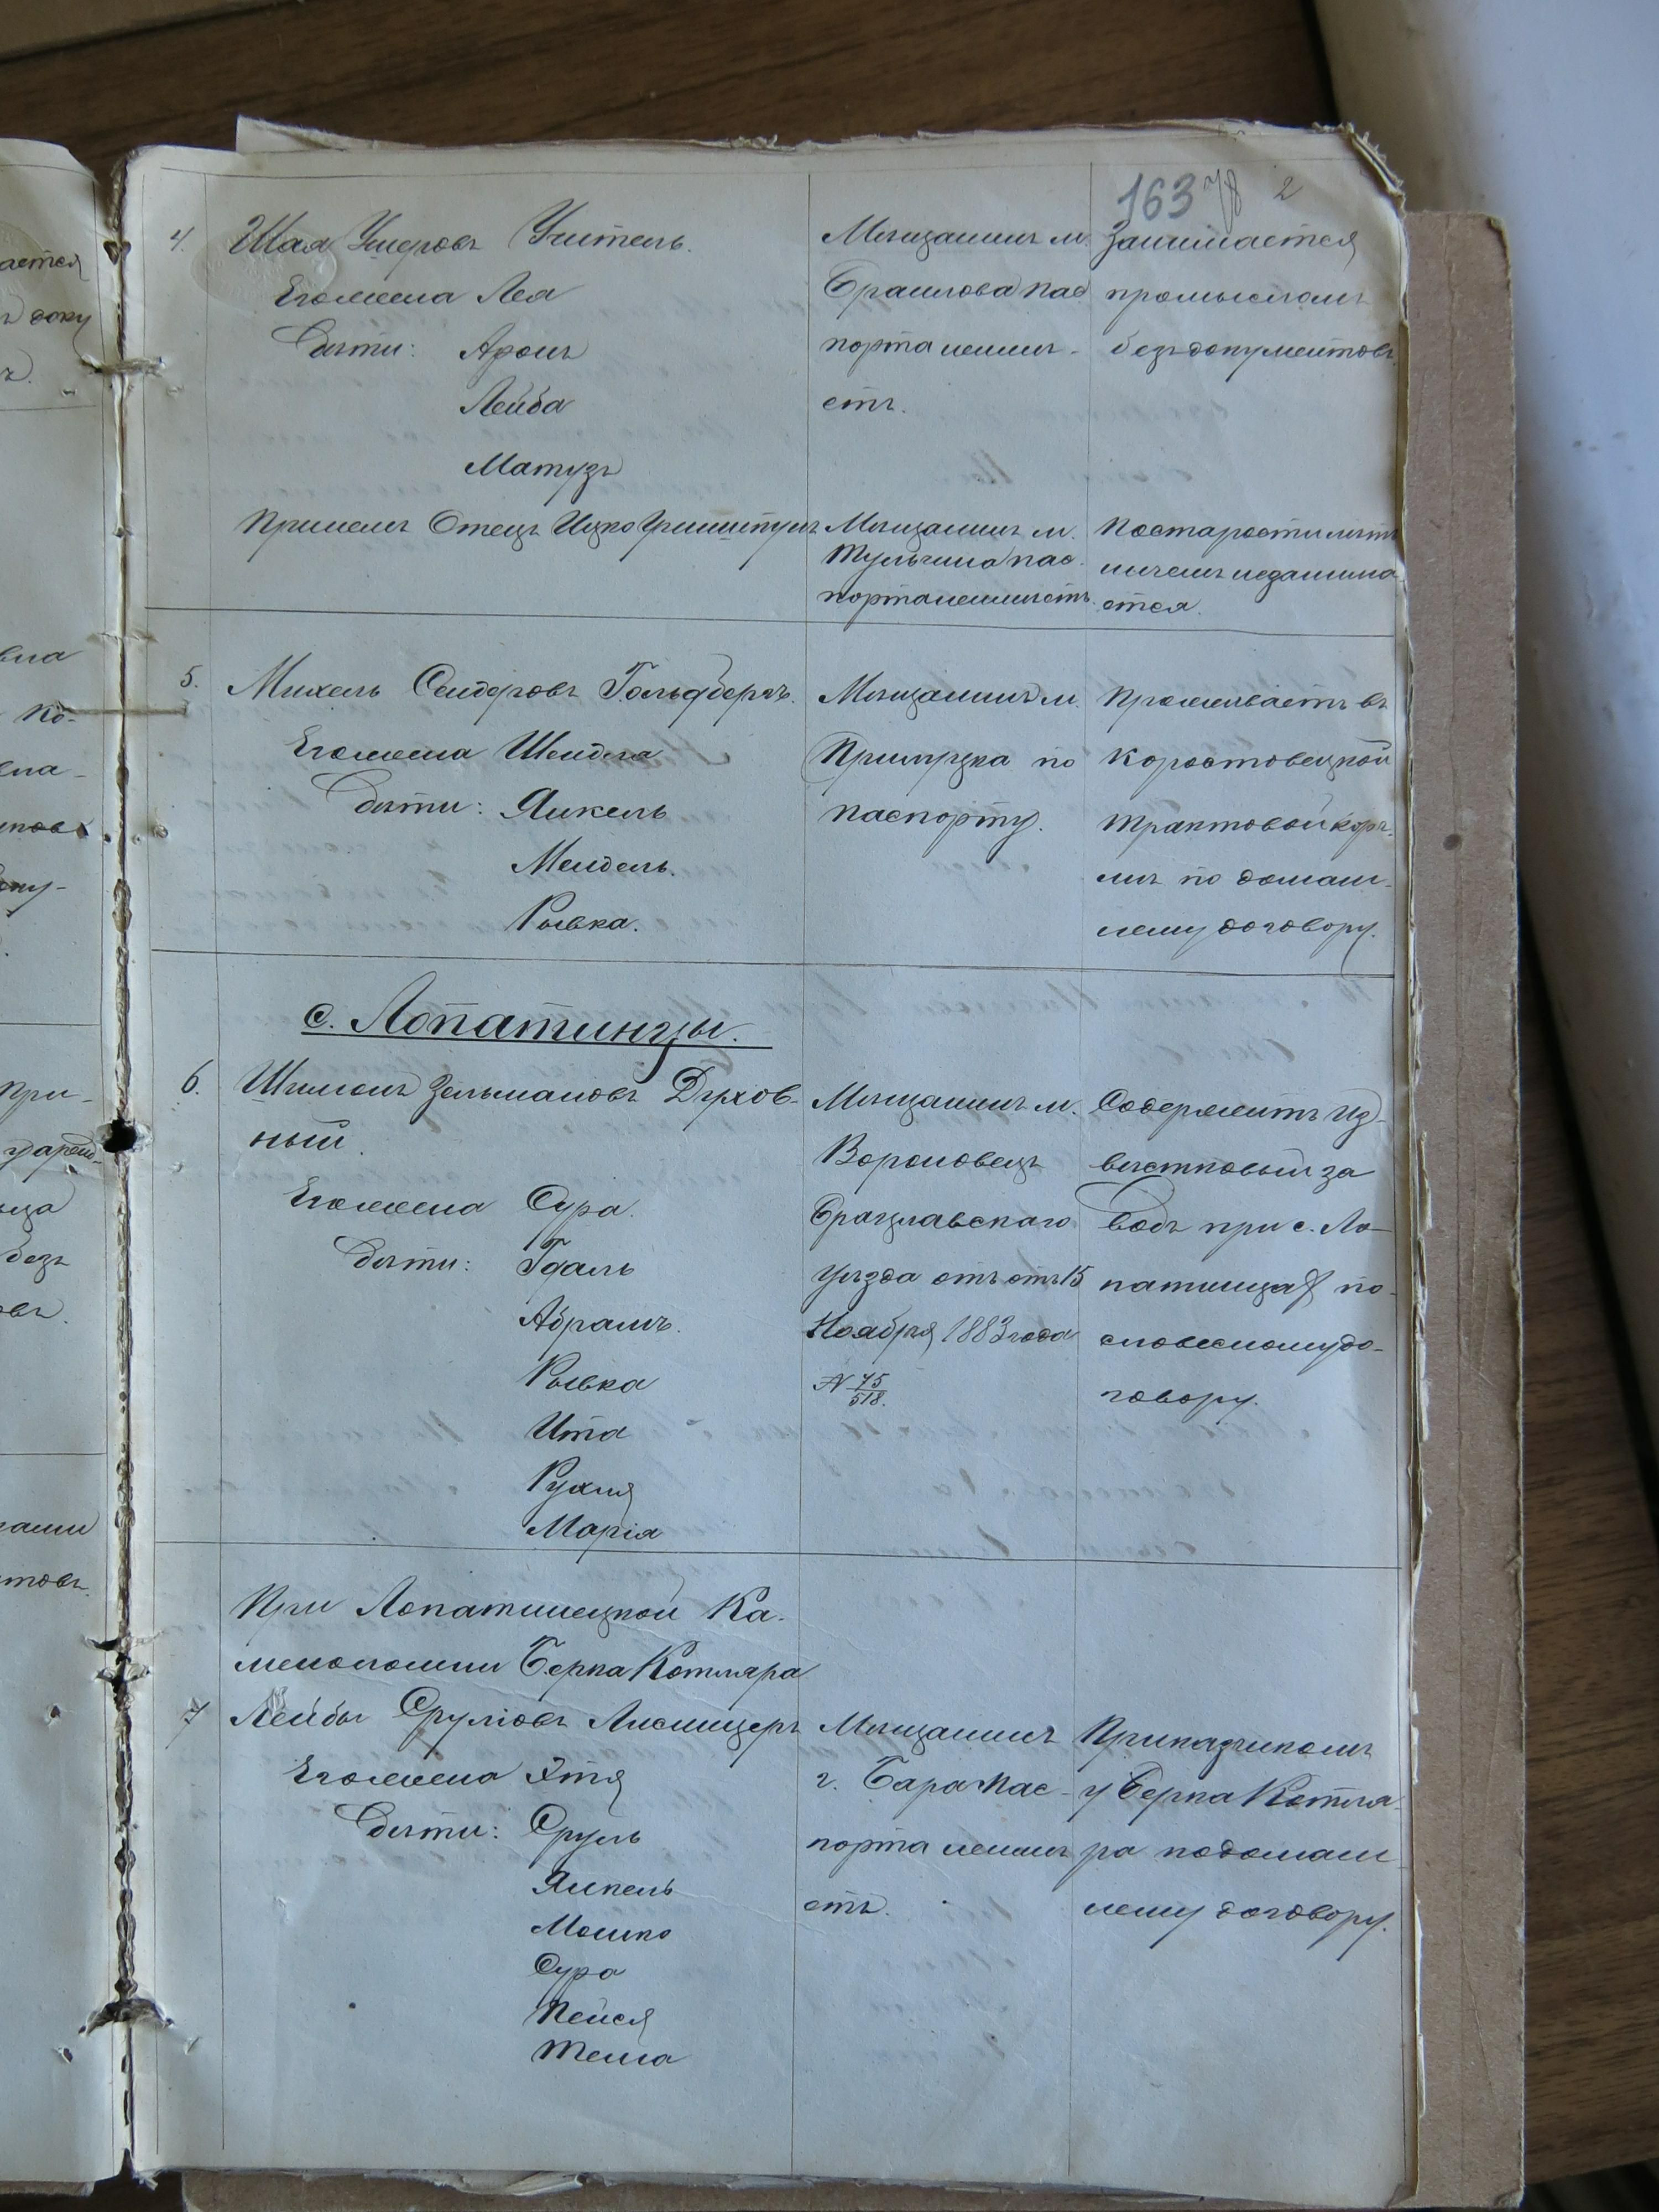 163 78 2
4. Шая Умеровъ Учитель.
Его жена Лея
Дѣти: Аронъ
Лейба
Матузъ
При немъ Отецъ Ицко Гринштунъ
Мѣщанинъ м.
Браилова пас
порта неимѣ-
етъ.
Мѣщанинъ м.
Тульчина пас-
порта неимѣетъ.
Занимается
промысломъ
безъ документовъ.
По старости лѣтъ
ничемъ незанима
ется.
5. Михель Сендеровъ Гольдбергъ.
Его жена Шендля
Дѣти: Янкель
Мендель.
Рывка.
Мѣщанинъ м.
по
паспорту.
Проживаетъ въ
Коростовецкой
трактовой корч-
мѣ по домаш-
нему договору.
с. Лопатинцы.
6. Шимонъ Зельмановъ Духов-
ный.
Его жена Сура.
Дѣти: Гдаль
Абрамъ.
Рывка
Ита
Рухля
Марія
Мѣщанинъ м.
Вороновецъ
Брацлавскаго
уѣзда отъ отъ 15
Ноября 1883 года
№ 75/518.
Содержитъ из-
вестковый за
водъ при с. Ло-
патинцахъ по
словесному до-
говору.
При Лопатинецкой Ка-
меноломни Берка Котляра
7 Лейбы Сруліовъ Лисницеръ
Его жена Этя
Дѣти: Сруль
Янкель
Мошко
Сура
Пейся
Темa
Мѣщанинъ
г. Бара пас-
порта неимѣ
етъ.
Приказчикомъ
у Берка Котля-
ра по домаш
нему договору.